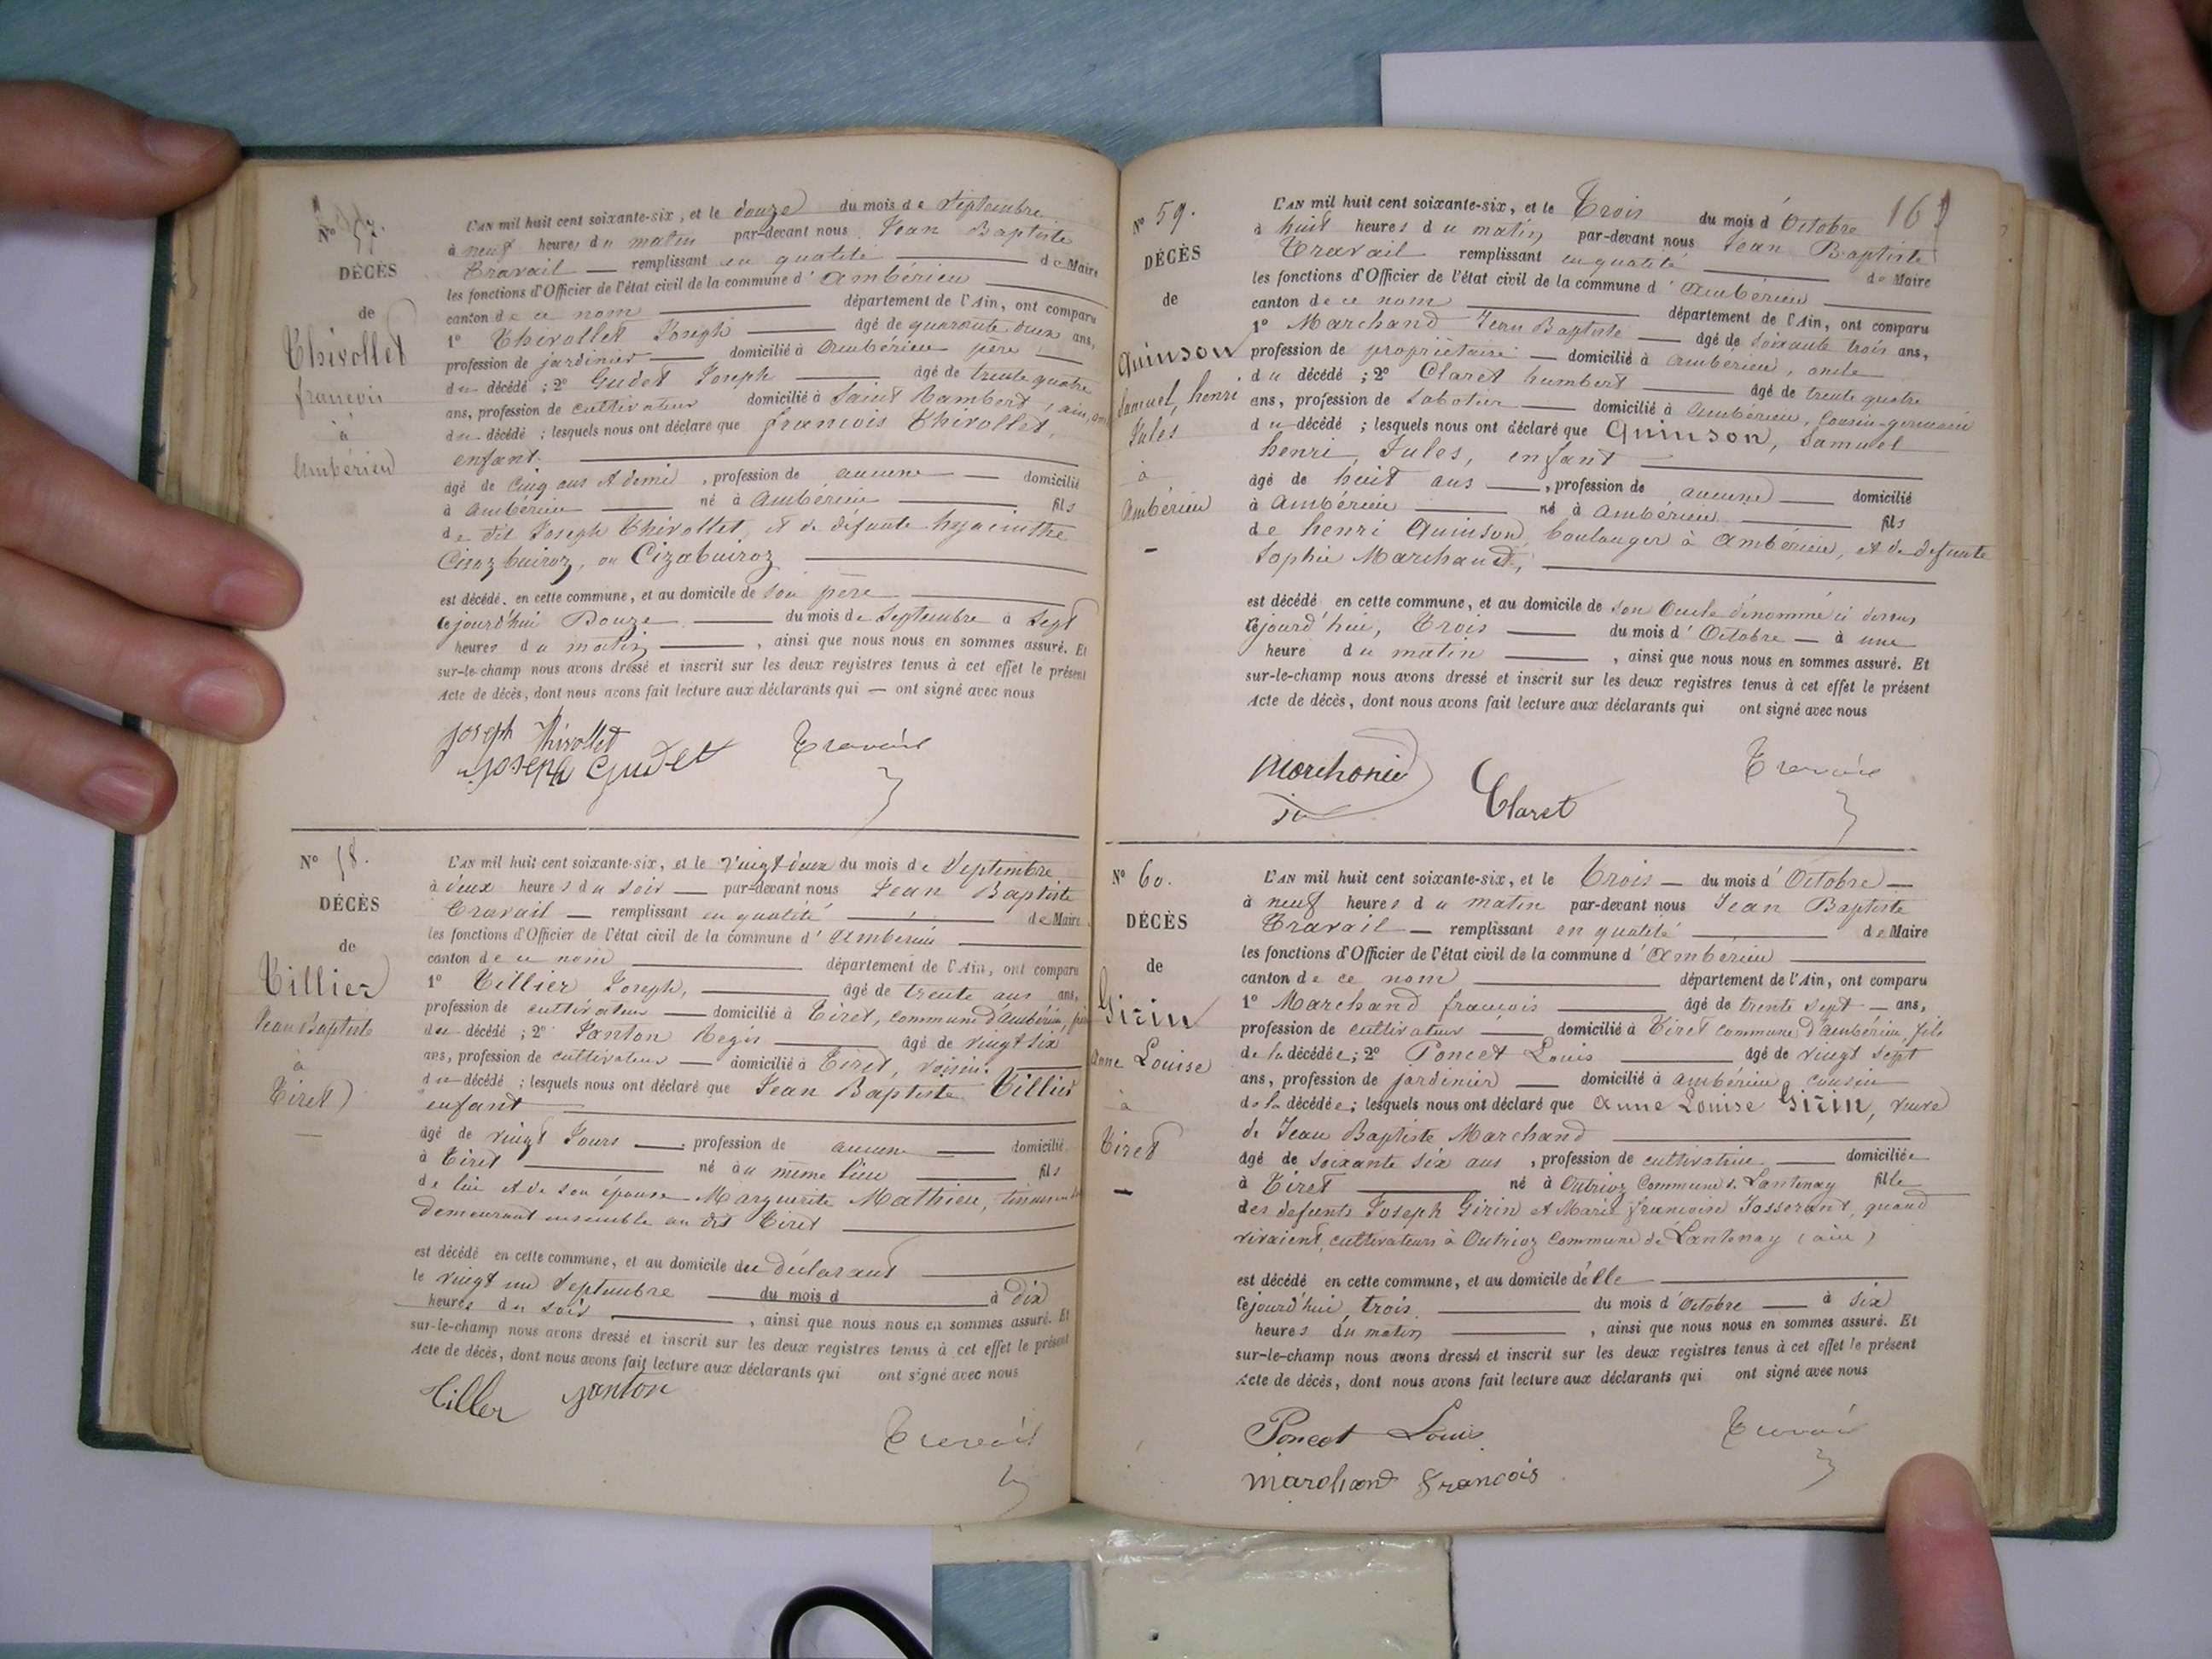 N° 57.
DÉCÈS
de
Thivollet
françois
à
Ambérieu
L'AN mil huit cent soixante-six, et le douze du mois de Septembre
à neuf heures du matin par-devant nous Jean Baptiste
Travail — remplissant en qualité de Maire
les fonctions d'Officier de l'état civil de la commune d'Ambérieu
canton de ce nom département de l'Ain, ont comparu
1° Thivollet Joseph âgé de quarante deux ans,
profession de jardinier domicilié à Ambérieu père
du décédé ; 2° Gudet Joseph âgé de trente quatre
ans, profession de cultivateur domicilié à Saint Rambert, ain,
du décédé ; lesquels nous ont déclaré que françois Thivollet,
enfant
âgé de Cinq ans et demi, profession de aucune domicilié
à Ambérieu né à Ambérieu fils
de dit Joseph Thivollet, et de défunte hyacinthe
Cizozbuiroz, ou Cizabuiroz
est décédé en cette commune, et au domicile de son père
cejourd'hui Douze du mois de Septembre à Sept
heures du matin, ainsi que nous nous en sommes assuré. Et
sur-le-champ nous avons dressé et inscrit sur les deux registres tenus à cet effet le présent
Acte de décès, dont nous avons fait lecture aux déclarants qui — ont signé avec nous
joseph thivollet Travail
joseph Gudet
N° 58.
DÉCÈS
de
Tillier
Jean Baptiste
à
Tiret
L'AN mil huit cent soixante-six, et le vingt deux du mois de Septembre
à deux heures du soir — par-devant nous Jean Baptiste
Travail — remplissant en qualité de Maire
les fonctions d'Officier de l'état civil de la commune d'Ambérieu
canton de ce nom département de l'Ain, ont comparu
1° Tillier Joseph, âgé de trente ans ans,
profession de cultivateur — domicilié à Tiret, commune d'ambérieu,
du décédé ; 2° Janton Régis âgé de vingt six
ans, profession de cultivateur — domicilié à Tiret, voisin.
du décédé ; lesquels nous ont déclaré que Jean Baptiste Tillier
enfant
âgé de vingt Jours —, profession de aucune — domicilié
à Tiret né au même lieu fils
de lui et de son épouse Marguerite Mathieu,
demeurant ensemble au dit Tiret
est décédé en cette commune, et au domicile du déclarant
le vingt un Septembre du mois d à dix
heures du soir, ainsi que nous nous en sommes assuré. Et
sur-le-champ nous avons dressé et inscrit sur les deux registres tenus à cet effet le présent
Acte de décès, dont nous avons fait lecture aux déclarants qui ont signé avec nous
Tiller janton
Travail
161
N° 59.
DÉCÈS
de
Quinson
Samuel, henri
Jules
à
Ambérieu
L'AN mil huit cent soixante-six, et le Trois du mois d'Octobre
à huit heures du matin par-devant nous Jean Baptiste
Travail remplissant en qualité de Maire
les fonctions d'Officier de l'état civil de la commune d'Ambérieu
canton de ce nom département de l'Ain, ont comparu
1° Marchand Jean Baptiste — âgé de soixante trois ans,
profession de propriétaire — domicilié à Ambérieu, oncle
du décédé ; 2° Claret humbert âgé de trente quatre
ans, profession de Sabotier — domicilié à Ambérieu, Cousin-germain
du décédé ; lesquels nous ont déclaré que Quinson, Samuel
henri, Jules, enfant
âgé de huit ans —, profession de aucune — domicilié
à Ambérieu né à Ambérieu fils
de henri Quinson, boulanger à Ambérieu, et de défunte
Sophie Marchand,
est décédé en cette commune, et au domicile de son Oncle dénommé ci dessus,
cejourd'hui, Trois du mois d'Octobre — à une
heure du matin, ainsi que nous nous en sommes assuré. Et
sur-le-champ nous avons dressé et inscrit sur les deux registres tenus à cet effet le présent
Acte de décès, dont nous avons fait lecture aux déclarants qui ont signé avec nous
Marchand Claret Travail
N° 60.
DÉCÈS
de
Girin
Anne Louise
à
Tiret
L'AN mil huit cent soixante-six, et le Trois — du mois d'Octobre —
à neuf heures du matin par-devant nous Jean Baptiste
Travail — remplissant en qualité de Maire
les fonctions d'Officier de l'état civil de la commune d'Ambérieu
canton de ce nom département de l'Ain, ont comparu
1° Marchand françois âgé de trente sept — ans,
profession de cultivateur domicilié à Tiret commune d'ambérieu, fils
de la décédée ; 2° Poncet Louis âgé de vingt sept
ans, profession de jardinier — domicilié à ambérieu, cousin
de la décédée ; lesquels nous ont déclaré que Anne Louise Girin, veuve
de Jean Baptiste Marchand
âgé de soixante six ans, profession de cultivatrice — domiciliée
à Tiret né à Outrioz Commune de Lantenay fille
des défunts Joseph Girin et Marie françoise Josserant, quand
vivaient, cultivateurs à Outrioz Commune de Lantenay (ain)
est décédé en cette commune, et au domicile d'elle
cejourd'hui trois du mois d'Octobre — à six
heures du matin, ainsi que nous nous en sommes assuré. Et
sur-le-champ nous avons dressé et inscrit sur les deux registres tenus à cet effet le présent
Acte de décès, dont nous avons fait lecture aux déclarants qui ont signé avec nous
Poncet Louis Travail
marchand François